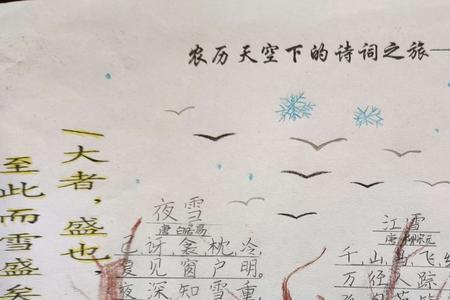 农历天空下的诗词之旅—
—大者，盛也，
至此而雪盛矣
夜雪
唐 白居易
已讶衾枕冷，
复见窗户明。
夜深知雪重，
江雪
唐 柳宗元
千山鸟飞
万径 踪